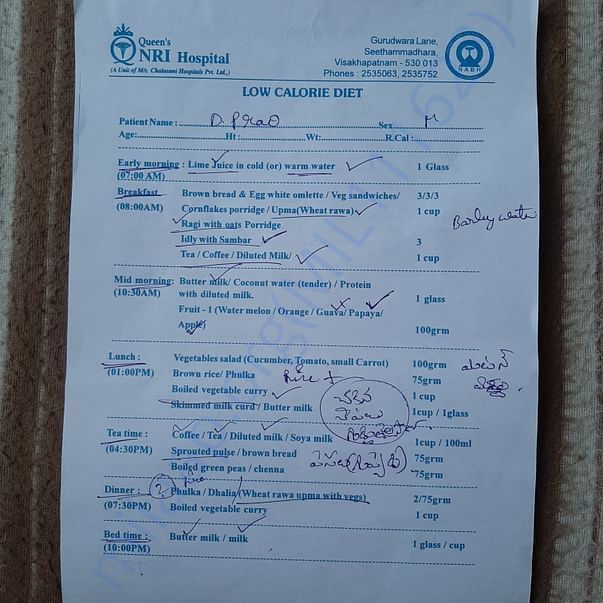 Queen's
NRI Hospital
(A Unit of M/s. Chalasani Hospitals Pvt. Ltd.,)
Gurudwara Lane,
Seethammadhara,
Visakhapatnam - 530 013
Phones : 2535063, 2535752
NABH
LOW CALORIE DIET
Patient Name : D. P Rao Sex M
Age: Ht : Wt: R.Cal :
Early morning : Lime Juice in cold (or) warm water 1 Glass
(07:00 AM)
Breakfast Brown bread & Egg white omlette / Veg sandwiches/ 3/3/3
(08:00AM) Cornflakes porridge / Upma(Wheat rawa) 1 cup
Barley water
Ragi with oats Porridge
Idly with Sambar 3
Tea / Coffee / Diluted Milk/ 1 cup
Mid morning: Butter milk/ Coconut water (tender) / Protein
(10:30AM) with diluted milk. 1 glass
Fruit - 1 (Water melon / Orange / Guava/ Papaya/
Apple) 100grm
Lunch : Vegetables salad (Cucumber, Tomato, small Carrot) 100grm
(01:00PM) Brown rice/ Phulka Rice 75grm
Boiled vegetable curry 1 cup
Skimmed milk curd / Butter milk 1cup / 1glass
Tea time : Coffee / Tea / Diluted milk / Soya milk 1cup / 100ml
(04:30PM) Sprouted pulse / brown bread 75grm
Boiled green peas / chenna 75grm
Dinner : 2 Phulka / Dhalia/(Wheat rawa upma with vegs) 2/75grm
(07:30PM) Boiled vegetable curry 1 cup
Bed time : Butter milk / milk 1 glass / cup
(10:00PM)